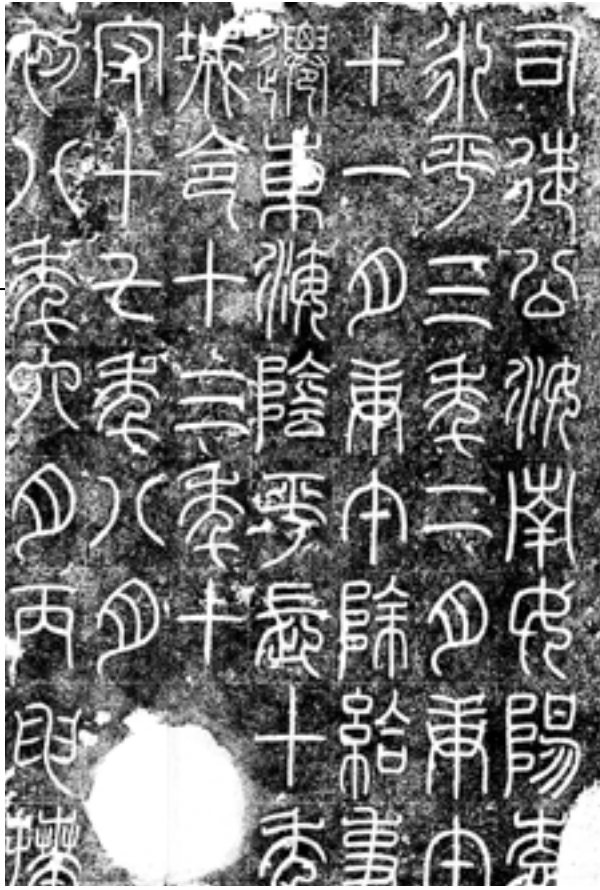 司徒公汝南女陽袁
永平三年二月庚午
十一月庚午除給事
遷東海陰平長十年
城令十三年十
守十七年八月
初八年六月丙申拜